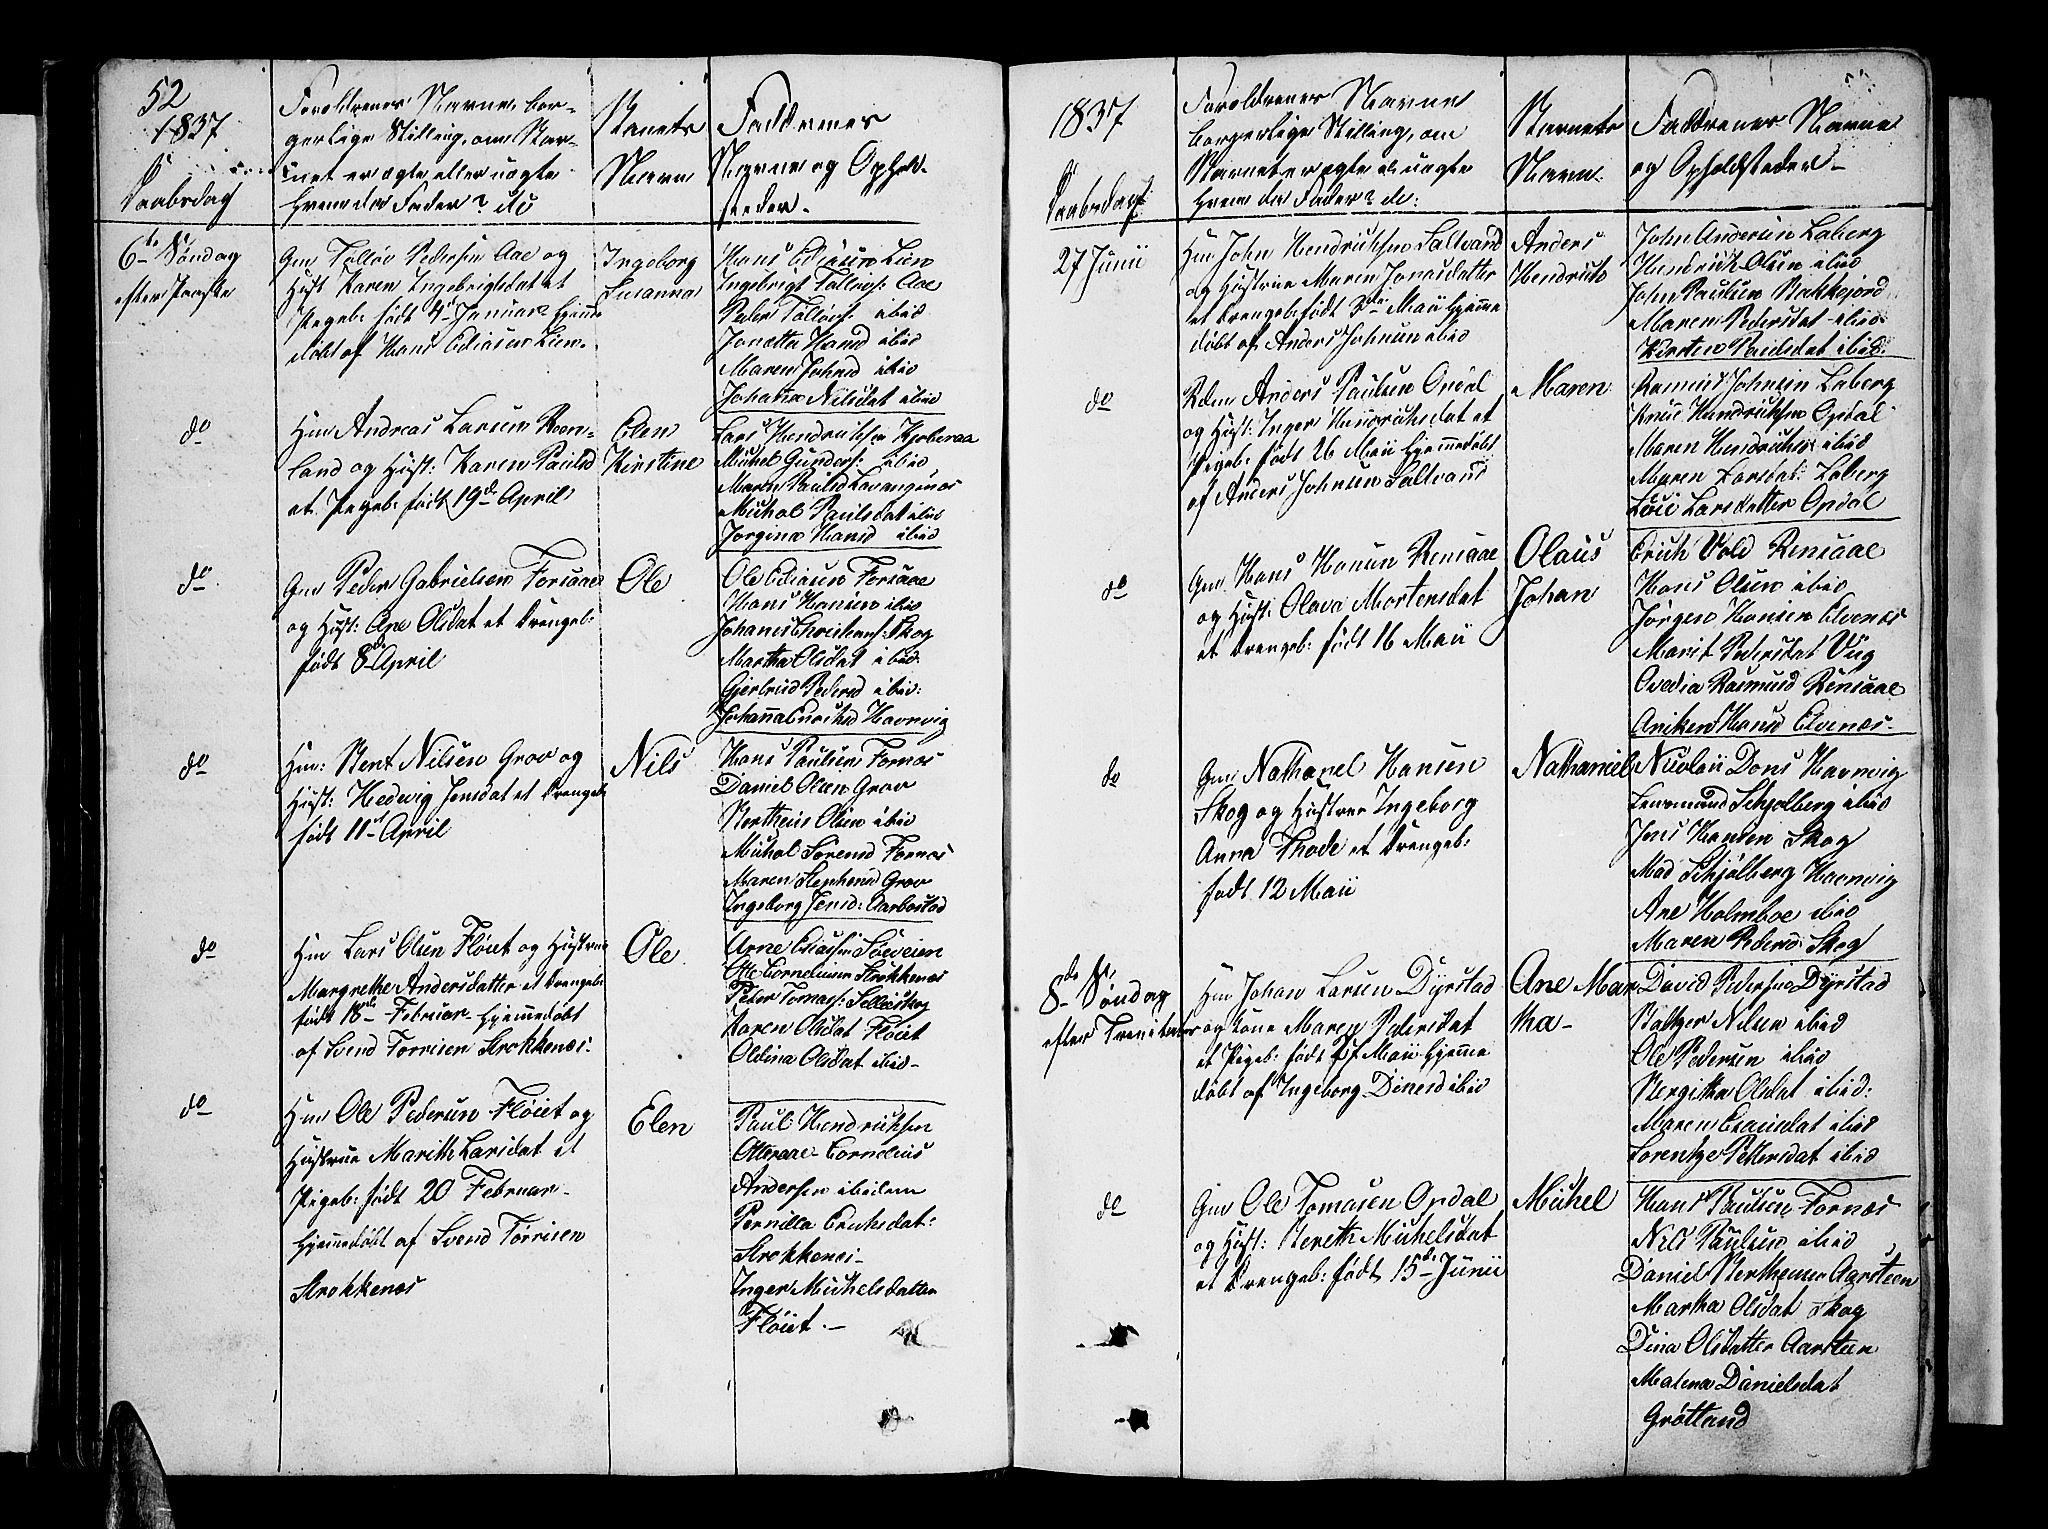 52
1837
Daabsdag
Foreldrenes Navne bor-
gerlige Stilling, om Bar-
net er ægte eller uægte
hvem der Fader? etc
Barnets
Navn
Faddernes
Navne og Ophol-
steder.
6te Søndag
efter Paaske
Gm Tolløv Pedersen Aae og
Hust Karen Ingebrigtsdat et
Pigeb: født 4de Januar hjemme
døbt af Hans Eliasen Lien.
Ingeborg
Susanna
Hans Eliasen Lien
Ingebrigt Tollefs: Aae
Peder Tolløfs: ibid
Jonetta Hansd ibid
Maren Johnsd ibid
Johana Nilsdat ibid
do
Hm Andreas Larsen Roen-
land og Hust: Karen Paulsd
et Pigeb: født 19de April
Elen
Kirstine
Lars Hendriksen Kjoberaa
Michel Gunders: ibid
Maren Paulsd Lavangsnes
Michal Paulsdat ibid
Jorgina Hansd ibid
do
Gm Peder Gabrielsen Forsaae
og Hust: Ane Olsdat et Drengeb:
født 8de April
Ole
Ole Eliasen Forsaae
Hans Hansen ibid
Johanes Christians: Skog
Martha Olsdat ibid
Gjertrud Pedersd ibid:
Johanna Enochsd Havnvig
do
Hm: Bent Nilsen Grov og
Hust: Hedvig Jensdat et Drengeb
født 11te April
Nils
Hans Paulsen Fornes
Daniel Olsen Grov
Bertheus Olsen ibid
Michal Sørensd Fornes
Maren Stephensd Grov
Ingeborg Jensd: Aarbostad
do
Hm Lars Olsen Fløiet og Hustrue
Margrethe Andersdatter et Drengeb:
født 18de Februar hjemmedøbt
af Svend Torrisen Strokkenes:
Ole
Arne Eliasen Søeveien
Ole Corneliusen Strokkenes
Peder Tomas: Selleskog
Karen Olsdat Fløiet
Oldina Olsdat ibid-
do
Hm Ole Pedersen Fløiet og
Hustrue Marith Larsdat et
Pigeb: født 20 Februar-
hjemmedøbt af Svend Torrisen
Strokkenes
Elen
Paul Hendriksen
Otteraae Cornelius
Andersen ibidem
Pernilla Eriksdat:
Strokkenes-
Inger Michelsdatter
Fløiet.-
1837
Daabsdag
Foreldrenes Navne
borgerlige Stilling, om
Barnet er ægte el uægte
hvem der Fader? etc:
Barnets
Navn.
Faddrenes Navne
og Opholdsteder-
27 Junii
Hm John Hendriksen Saltvand
og Hustrue Maren Jonasdatter
et Drengeb født 3de Maii hjemme
døbt af Anders Johnsen ibid
Anders
Hendrich
John Andersen Laberg
Hendrich Olsen ibid
John Paulsen Bakkejord
Maren Pedersdat ibid.
Kirsten Paulsdat ibid.
do
Rdm Anders Paulsen Opdal
og Hust: Inger Hendrichsdat et
Pigeb: født 26 Maii hjemmedøbt
af Anders Johnsen Saltvand
Maren
Rasmus Johnsen Laberg
Knud Hendriksen Opdal
Maren Hendrichs: ibid
Maren Larsdat: Laberg
Lovi Larsdatter Opdal
do
Gm Hans Hansen Rensaae
og Hust: Olava Mortensdat
et Drengeb: født 16 Maii
Olaus
Johan
Erich Vold Rensaae
Hans Olsen ibid
Jørgen Hansen Elvenes
Marit Pedersdat Vug
Ovedia Rasmusd Rensaae
Aniken Hansd Elvenes-
do
Gm: Nathanel Hansen
Skog og Hustrue Ingeborg
Anna Thode et Drengeb:
født 12 Maii
Nathaniel
Nicolaii Dons Havnvig
Lensmand Schjølberg ibid
Jens Hansen Skog
Mad Schjølberg Havnvig
Ane Holmboe ibid
Maren Pedersd: Skog
8de Søndag
efter Trenitatis
Hm Johan Larsen Dyrstad
og Kone Maren Pedersdat
et Pigeb: født Maii hjemme
døbt af Ingeborg Dinesd ibid
Ane Mar
tha-
David Pedersen Dyrstad
Baltzer Nilsen ibid
Ole Pedersen ibid
Bergitha Olsdat ibid:
Maren Esaiasdat ibid
Lorentze Pettersdat ibid
do
Gm Ole Tomasen Opdal
og Hust: Bereth Michelsdat
et Drengeb: født 15de Junii
Michel
Hans Paulsen Fornes
Nils Paulsen ibid
Daniel Bertheusen Aarsteen
Martha Olsdat Skog
Dina Olsdatter Aarsteen
Malena Danielsdat
Grøtland